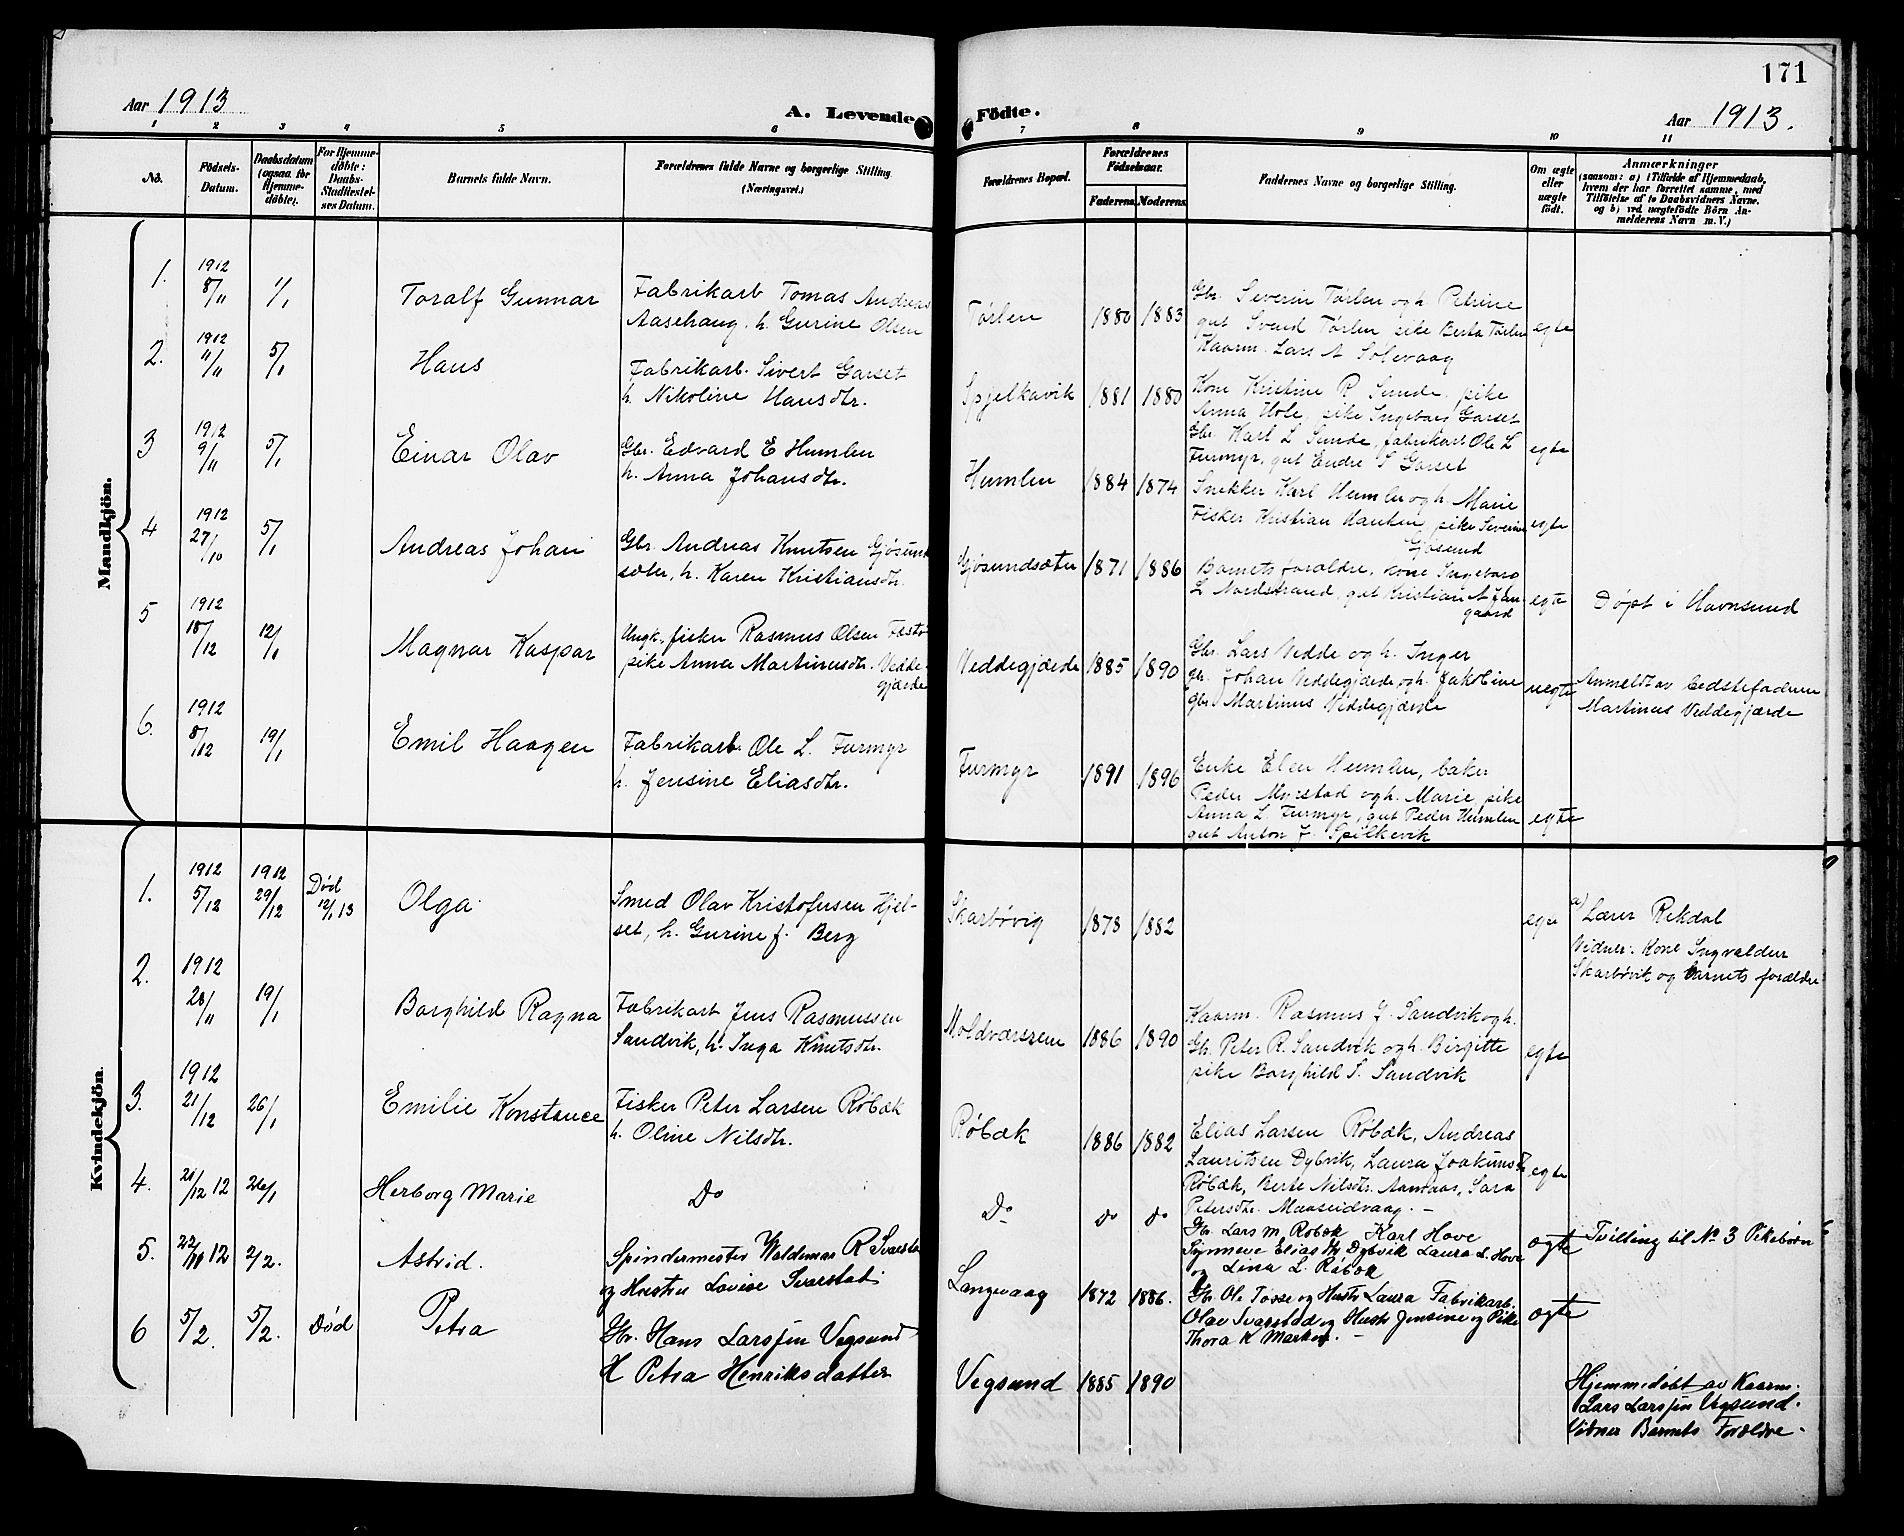 171
Aar 1913
A. Levende Födte.
Aar 1913.
1 2 3 4 5 6 7 8 9 10 11
No.
Födsels-
Datum.
Daabsdatum
(ogsaa for
Hjemme-
döbte).
For Hjemme-
döbte:
Daabs-
Stadfæstel-
ses Datum.
Barnets fulde Navn.
Forældrenes fulde Navne og borgerlige Stilling
(Næringsvei.)
Forældrenes Bopæl.
Forældrenes
Födselsaar.
Faderens. Moderens.
Faddernes Navne og borgerlige Stilling.
Om ægte
eller
uægte
födt.
Anmærkninger
(saasom: a) i Tilfælde af Hjemmedaab,
hvem der har forrettet samme, med
Tilföielse af to Daabsvidners Navne,
og b) ved uægtefödte Börn An-
melderens Navn m.V.)
Mandkjön.
1.
1912
8/11
1/1
Toralf Gunnar
Fabrikarb Tomas Andreas
Aasehaug. h. Gurine Olsen
Tørlen
1880
1883
Gbr. Severin Tørlen og h. Petrine
gut Svend Tørlen, pike Berta Tørlen
Kaarm. Lars A Solevaag
egte
2.
1912
11/11
5/1
Hans
Fabrikarb. Sivert Garset
h. Nikoline Hansdtr.
Spjelkavik
1881
1880
Kone Kristine R Sunde. pike
Anna Hole, pike Ingeborg Garset
Gbr. Karl L Sunde, fabrikarb Ole L
Furmyr, gut Endre S Garset
egte
3
1912
9/11
5/1
Einar Olav
Gbr. Edvard E Humlen
h. Anna Johansdtr.
Humlen
1884
1874
Snekker Karl Humlen og h. Marie
Fisker Kristian Hauken, pike Severine
Gjøsund
egte
4
1912
27/10
5/1
Andreas Johan
Gbr. Andreas Knutsen Gjøsund
sæter, h. Karen Kristiansdtr.
Gjøsundsæter
1871
1886
Barnets forældre, kone Ingeborg
L Nordstrand, gut Kristian A
gaard
egte
Døpt i Havnsund
5
1912
18/12
12/1
Magnar Kaspar
Ungk. fisker Rasmus Olsen Festø
pike Anna Martinusdtr. Vedde-
gjærde
Veddegjærde
1885
1890
Gbr. Lars Vedde og h. Inger
gbr. Johan Veddegjerde og h. Jakobine
gbr. Martinus Veddegjærde
uegte
Anmeldt av bedstefaderen
Martinus Veddegjærde
6.
1912
8/12
19/1
Emil Haagen
Fabrikarb. Ole L. Furmyr
h. Jensine Eliasdtr.
Furmyr
1891
1896
Enke Elen Humlen, baker
Peder Myrstad og h. Marie pike
Anna L. Furmyr, gut Peder Humlen
gut Anton J. Spilkevik
egte
Kvindekjön.
1.
1912
5/12
1912
29/12
Død
12/1 13
Olga
Smed Olav Kristofersen Hjel-
set, h. Gurine f. Berg
Skarbøvig
1878
1882
egte
a) Lærer Rekdal
Vidner: Kone Ingvaldsen
Skarbøvik og barnets forældre
2.
1912
28/11
19/1
Borghild Ragna
Fabrikarb Jens Rasmussen
Sandvik, h. Inga Knutsdtr.
Moldværsrem
1886
1890
Kaarm. Rasmus J. Sandvik og h.
Gbr. Peter R. Sandvik og h. Birgitte
pike Borghild T. Sandvik
egte
3.
1912
21/12
26/1
Emilie Konstance
Fisker Peter Larsen Røbæk
h. Oline Nilsdtr.
Røbæk
1886
1882
Elias Larsen Røbæk, Andreas
Lauritsen Dybvik, Laura Joakimsdtr
Røbæk, Berte Nilsdtr. Aamaas, Sara
Petersdtr. Maaseidvaag. –
egte
4.
21/12 12
26/1
Herborg Marie
Do
Do
Do
Do
Gbr. Lars M. Robæk Karl Hove
Synneve Eliasdtr Dybvik Laura L. Hove
og Lina L. Røbæk
ægte
Tvilling til No 3 Pikebørn
5.
22/10 12
2/2.
Astrid.
Spindemester Waldemar R Svarsta
og Hustru Lovise Svarstad
Langevaag
1872
1886.
Gbr. Ole Tosse og Hustr Laura Fabrikarb.
Olav Svarstad og Hustr Jensine og Pike
Thora K Marken. –
ægte
6
5/2.
5/2.
Død
Petra
Gbr. Hans Larssen Vegsund
H Petra Henriksdatter
Vegsund
1885
1890
Hjemmedøbt av Kaarm.
Lars Larssen Vegsund.
Vidner Barnets Forældre.